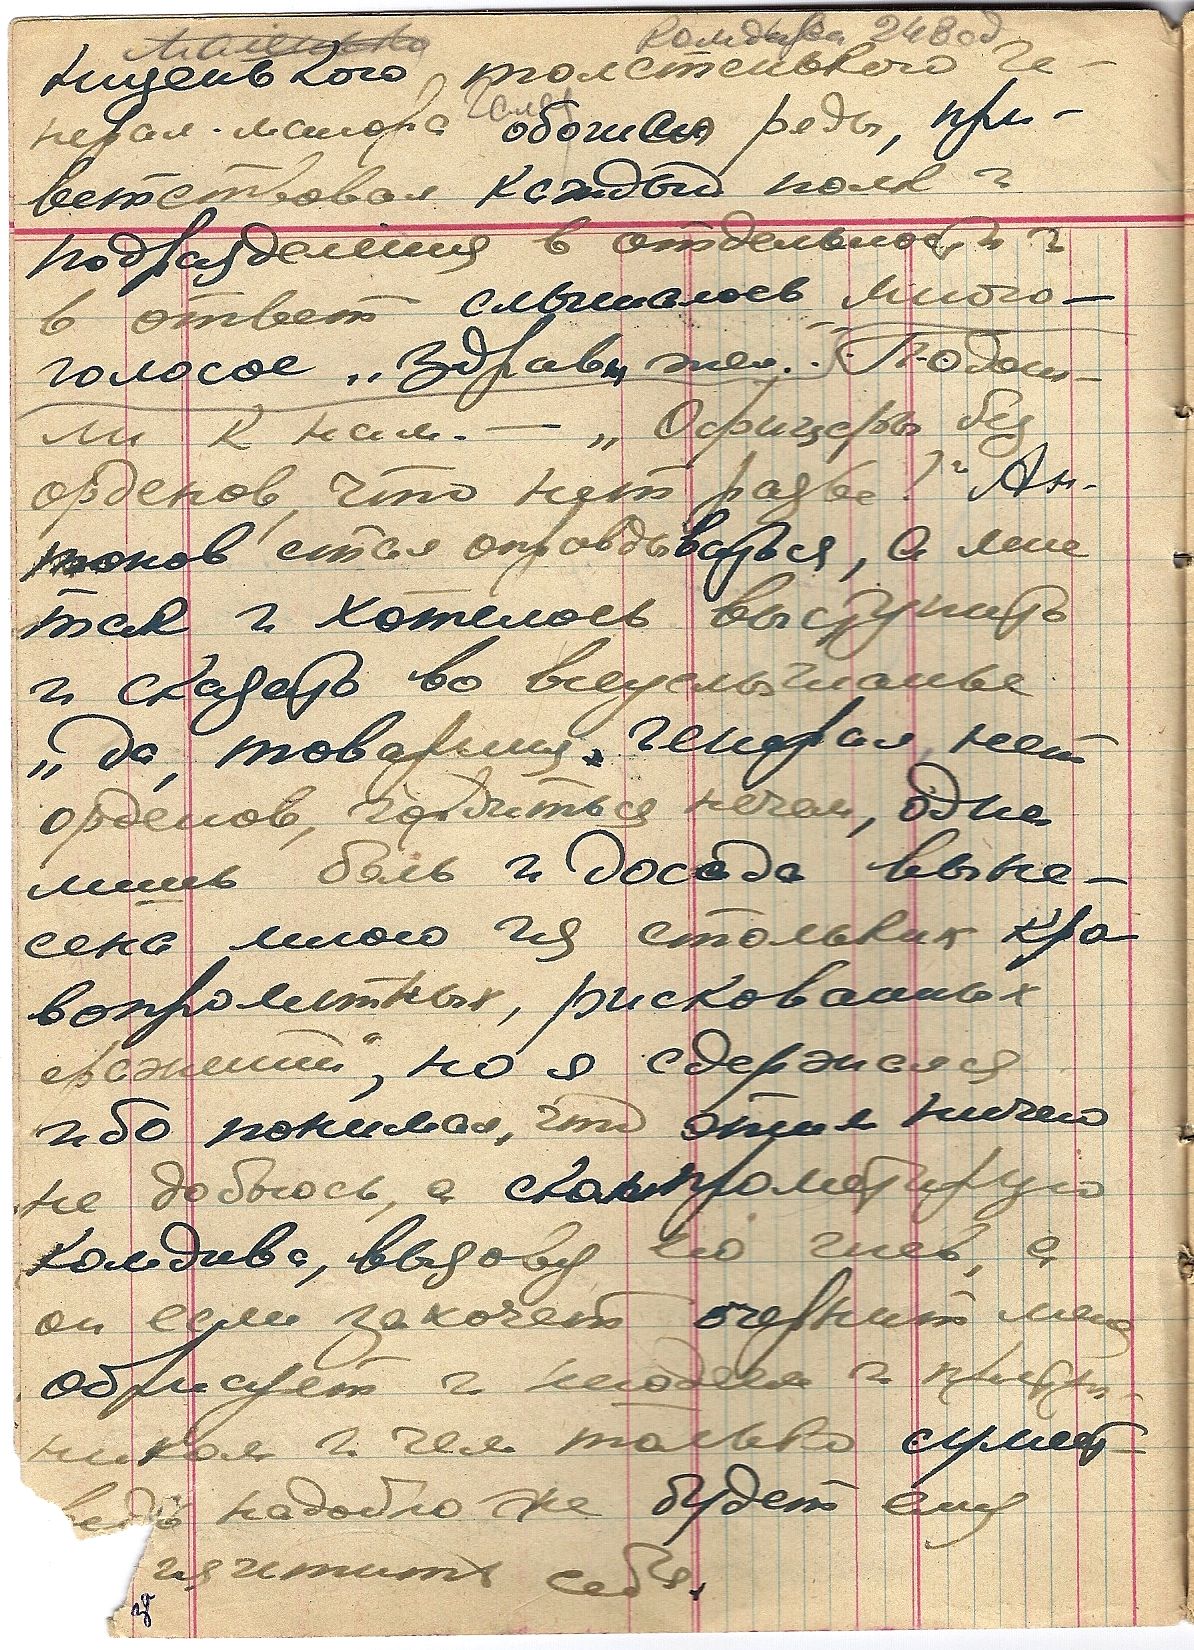 Комдива 248 сд
низенького толстенького ге-
нерал-майора обошли ряды, при-
ветствовал каждый полк и
подразделения в отдельности и
в ответ слышалось много-
голосое „Здрав жел..." Подош-
ли к нам. — „Офицеры без
орденов, что нет разве?" Ан-
тонов стал оправдываться, а мне
так и хотелось выступить
и сказать во всеуслышанье
„да, товарищ генерал, нет
орденов, гордиться нечем, одна
лишь боль и досада выне-
сена мною из стольких кро
вопролитных, рискованных
сражений", но я сдержался
ибо понимал, что этим ничего
не добьюсь, а скомпрометирую
комдива, вызову его гнев, а
он если захочет очернит меня
обрисует и и
ником и чем только сумеет-
ведь надобно же будет ему
себя.